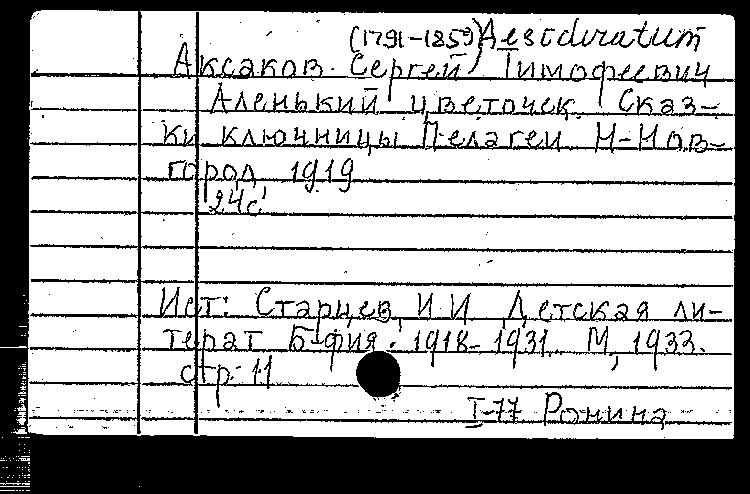 (1791-1859) Desideratum
Аксаков Сергей Тимофеевич
Аленький цветочек. Сказ-
ки ключницы Пелагеи. Н-Нов-
город, 1919
24с.
Ист: Старцев, И.И. Детская ли-
терат. Б-фия. 1918-1931. М, 1933.
стр. 11
I-77 Ронина